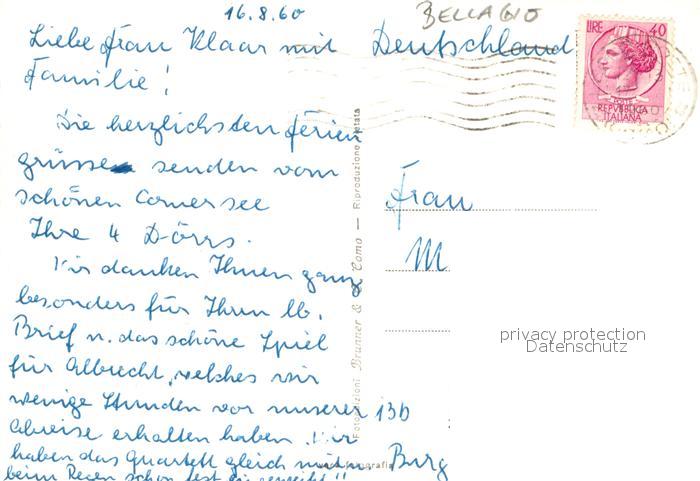 16.8.60
BELLAGIO
Liebe Frau Klaar mit
Familie!
Die herzlichsten Ferien
grüsse senden vom
schönen Comersee
Ihre 4 Dörrs.
Wir danken Ihnen ganz
besonders für Ihren lb.
Brief u. das schöne Spiel
für Albrecht, welches wir
wenige Stunden vor unserer
Abreise erhalten haben. Wir
haben das Quartett gleich
beim Regen schon fest eingeweiht!!
Deutschland
LIRE 40
POSTE
REPVBBLICA
ITALIANA
Frau
M
13b
Burg
Fotoedizioni Brunner & Como — Riproduzione vietata
fotografia
privacy protection
Datenschutz